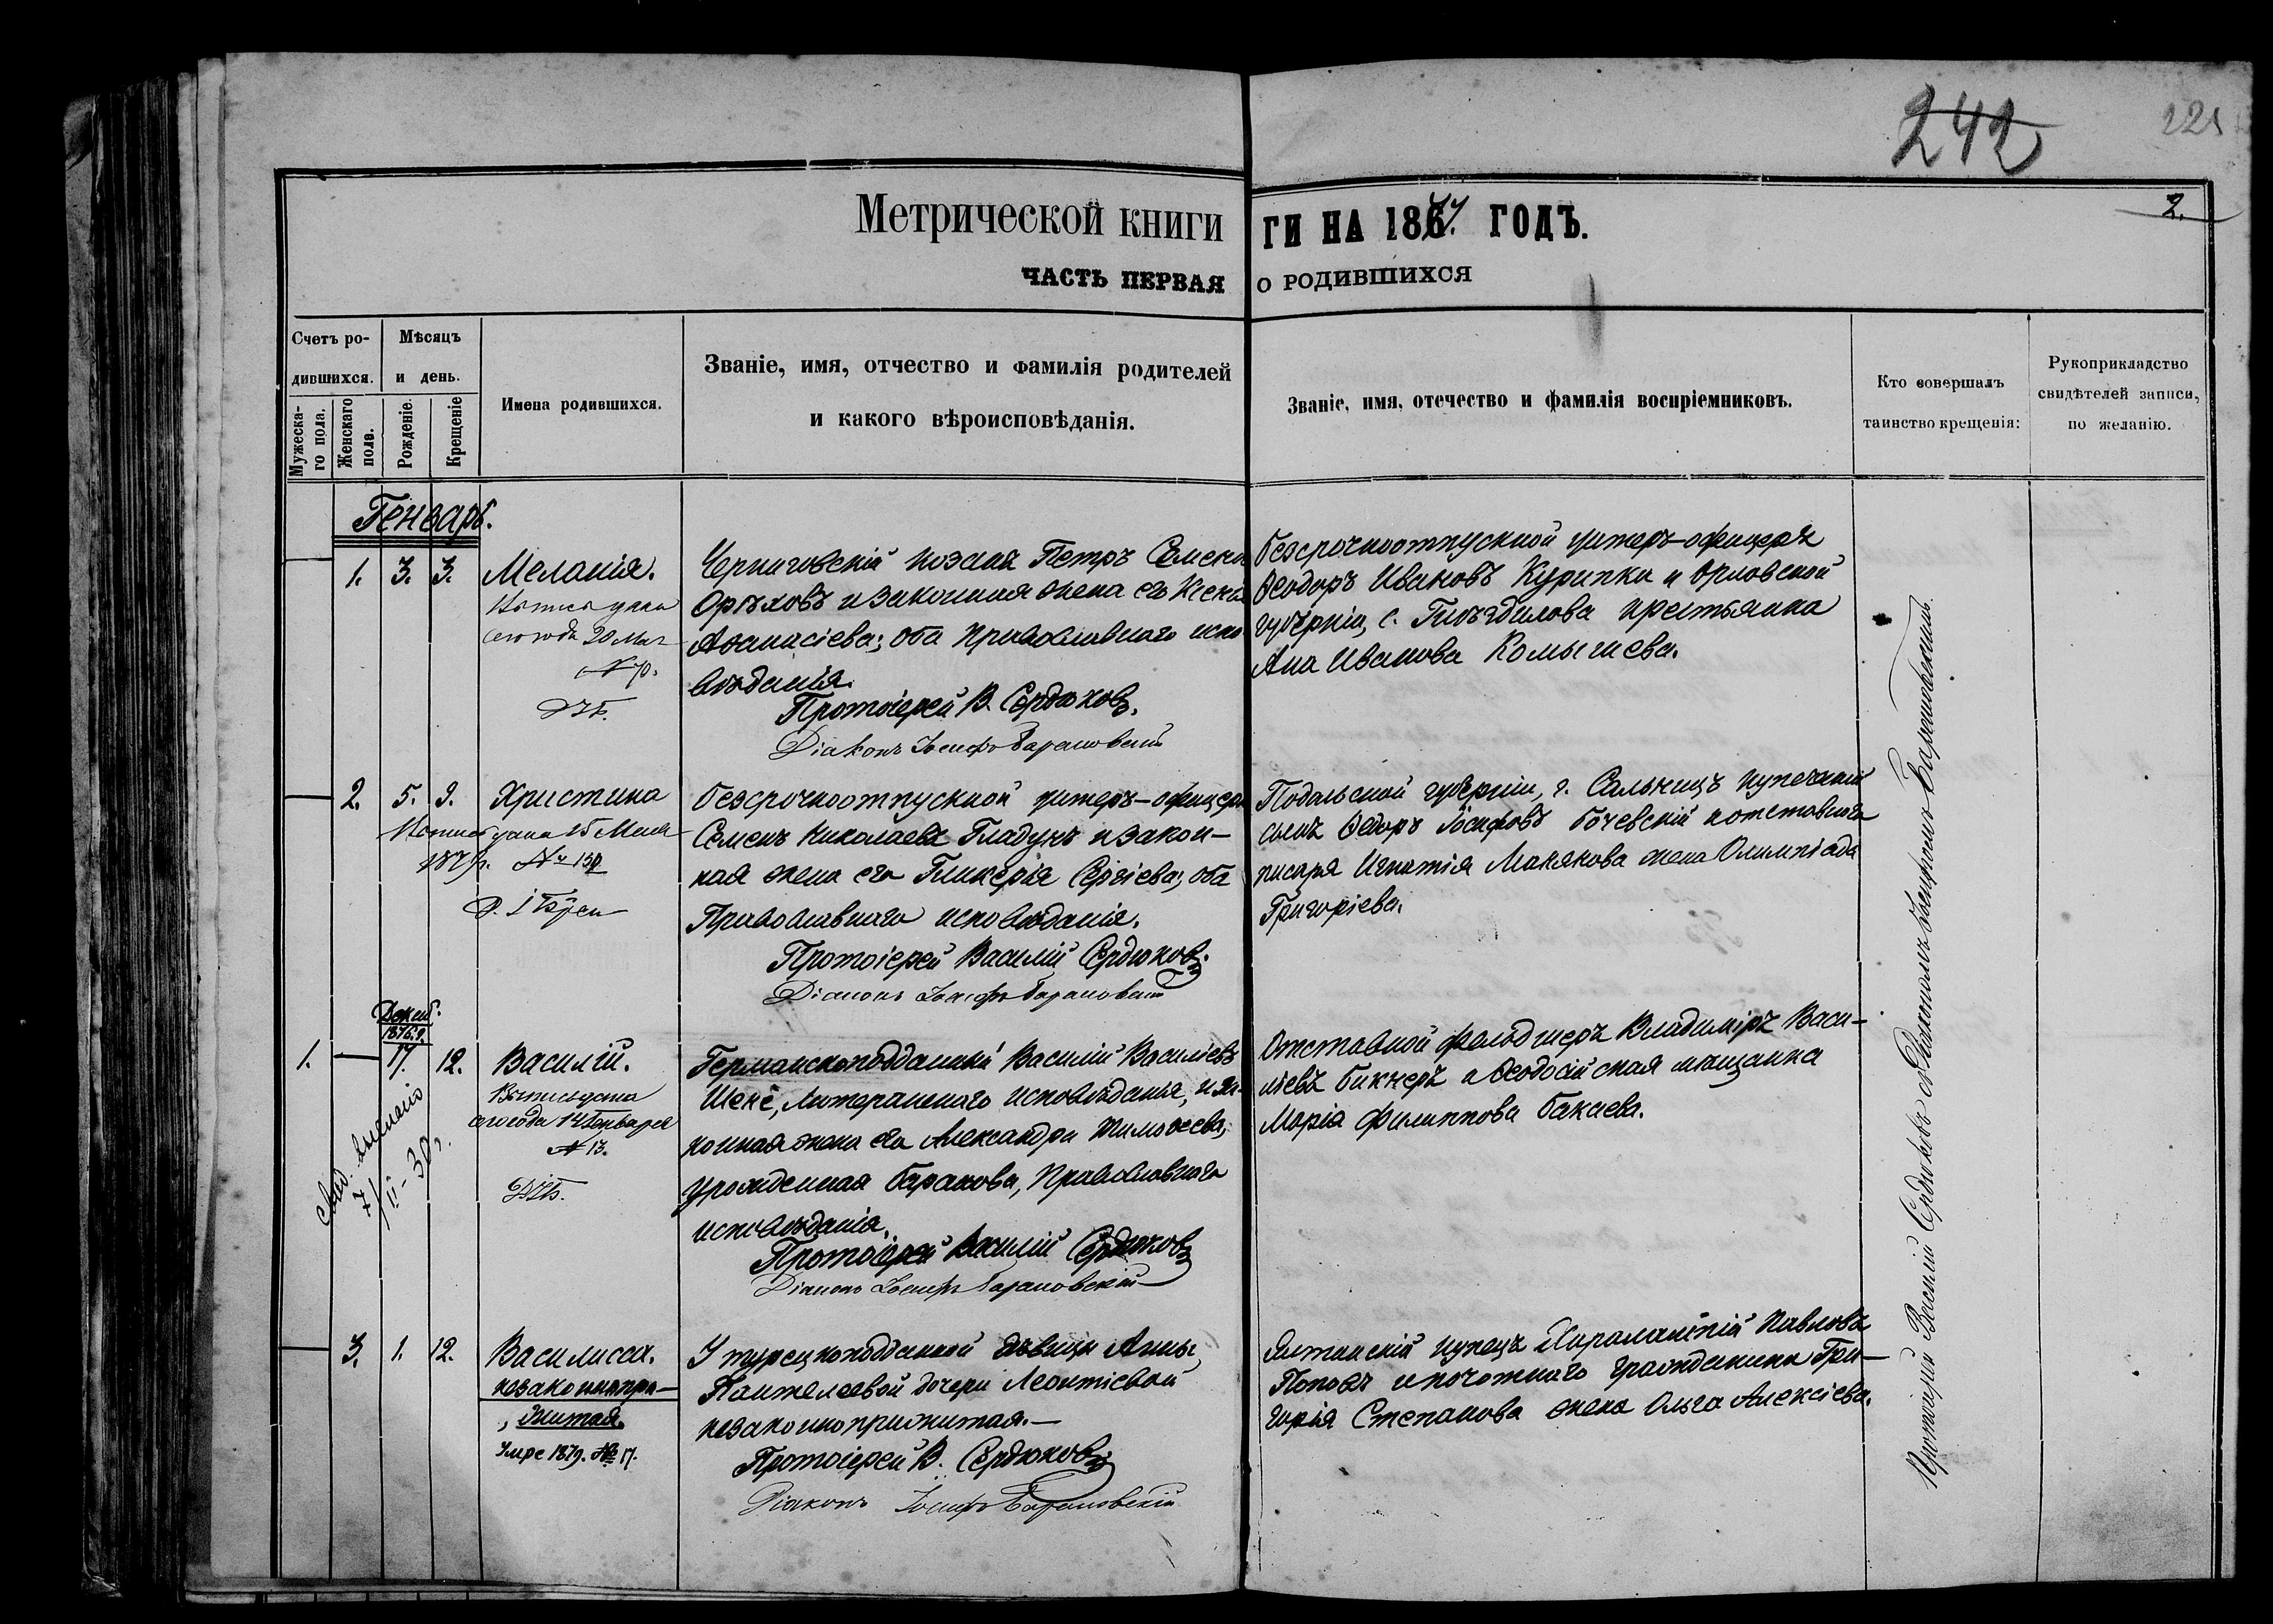 242
221
2.
Метрической книги
ГИ НА 1877. ГОДЪ.
ЧАСТЬ ПЕРВАЯ
О РОДИВШИХСЯ
Счетъ ро-
дившихся.
Мужеска-
го пола.
Женскаго
пола.
Мѣсяцъ
и день.
Рожденіе.
Крещеніе
Имена родившихся.
Званіе, имя, отчество и фамилія родителей
и какого вѣроисповѣданія.
Званіе, имя, отечество и фамилія воспріемниковъ.
Кто совершалъ
таинство крещенія:
Рукоприкладство
свидѣтелей записи,
по желанію.
Генварь.
1. 3. 3.
Меланія.
сего года 20
Черниговскій козакъ Петръ Семеновъ
Орѣховъ и законная жена его Ксенія
Аѳанасіева; оба Православнаго испо
вѣданія.
Протоіерей В. Сердюковъ.
Діаконъ Іосифъ Барановскій
безсрочноотпускной унтеръ-офицеръ
Ѳеодоръ Ивановъ Курипка и Орловской
губерніи, с. Гнѣздилова крестьянка
Анна Иванова Комычева.
2. 5. 9.
Христина
безсрочноотпускной унтеръ-офицеръ
Семенъ Николаевъ Гладунъ и закон-
ная жена его Гликерія Сергіева; оба
Православнаго исповѣданія.
Протоіерей Василій Сердюковъ.
Діаконъ Іосифъ Барановскій
Подольской губерніи, г. Сальницъ купеческій
сынъ Ѳедоръ Іосифовъ Бочевскій и отставнаго
писаря Игнатія Манякова жена Олимпіада
Григоріева.
Декаб.
1876 г.
1. 17. 12.
Василій.
Выпись дана
сего года 14 Генваря
№ 13.
7/II-30 г.
Германскоподданный Василій Васильевъ
Шене, Лютеранскаго исповѣданія, и за
конная жена его Александра Тимоѳеева,
урожденная Баранова, Православнаго
исповѣданія.
Протоіерей Василій Сердюковъ
Діаконъ Іосифъ Барановскій
Отставной фельдшеръ Владиміръ Васи-
ліевъ Бикнеръ и Ѳеодосійская мѣщанка
Марія Филиппова Бакаева.
3. 1. 12.
Василисса.
незаконнопри-
житая.
Умре 1879. № 17.
У турецкоподданной дѣвицы Анны
Пантелеевой дочери Леонтіевой
незаконноприжитая.—
Протоіерей В. Сердюковъ
Діаконъ Іосифъ Барановскій
Ялтинскій купецъ Харалампій Павловъ
Поповъ и почетнаго гражданина Гри-
горія Степанова жена Ольга Алексіева.
Протоіерей Василій Сердюковъ съ Діакономъ Іосифомъ Барановскимъ.